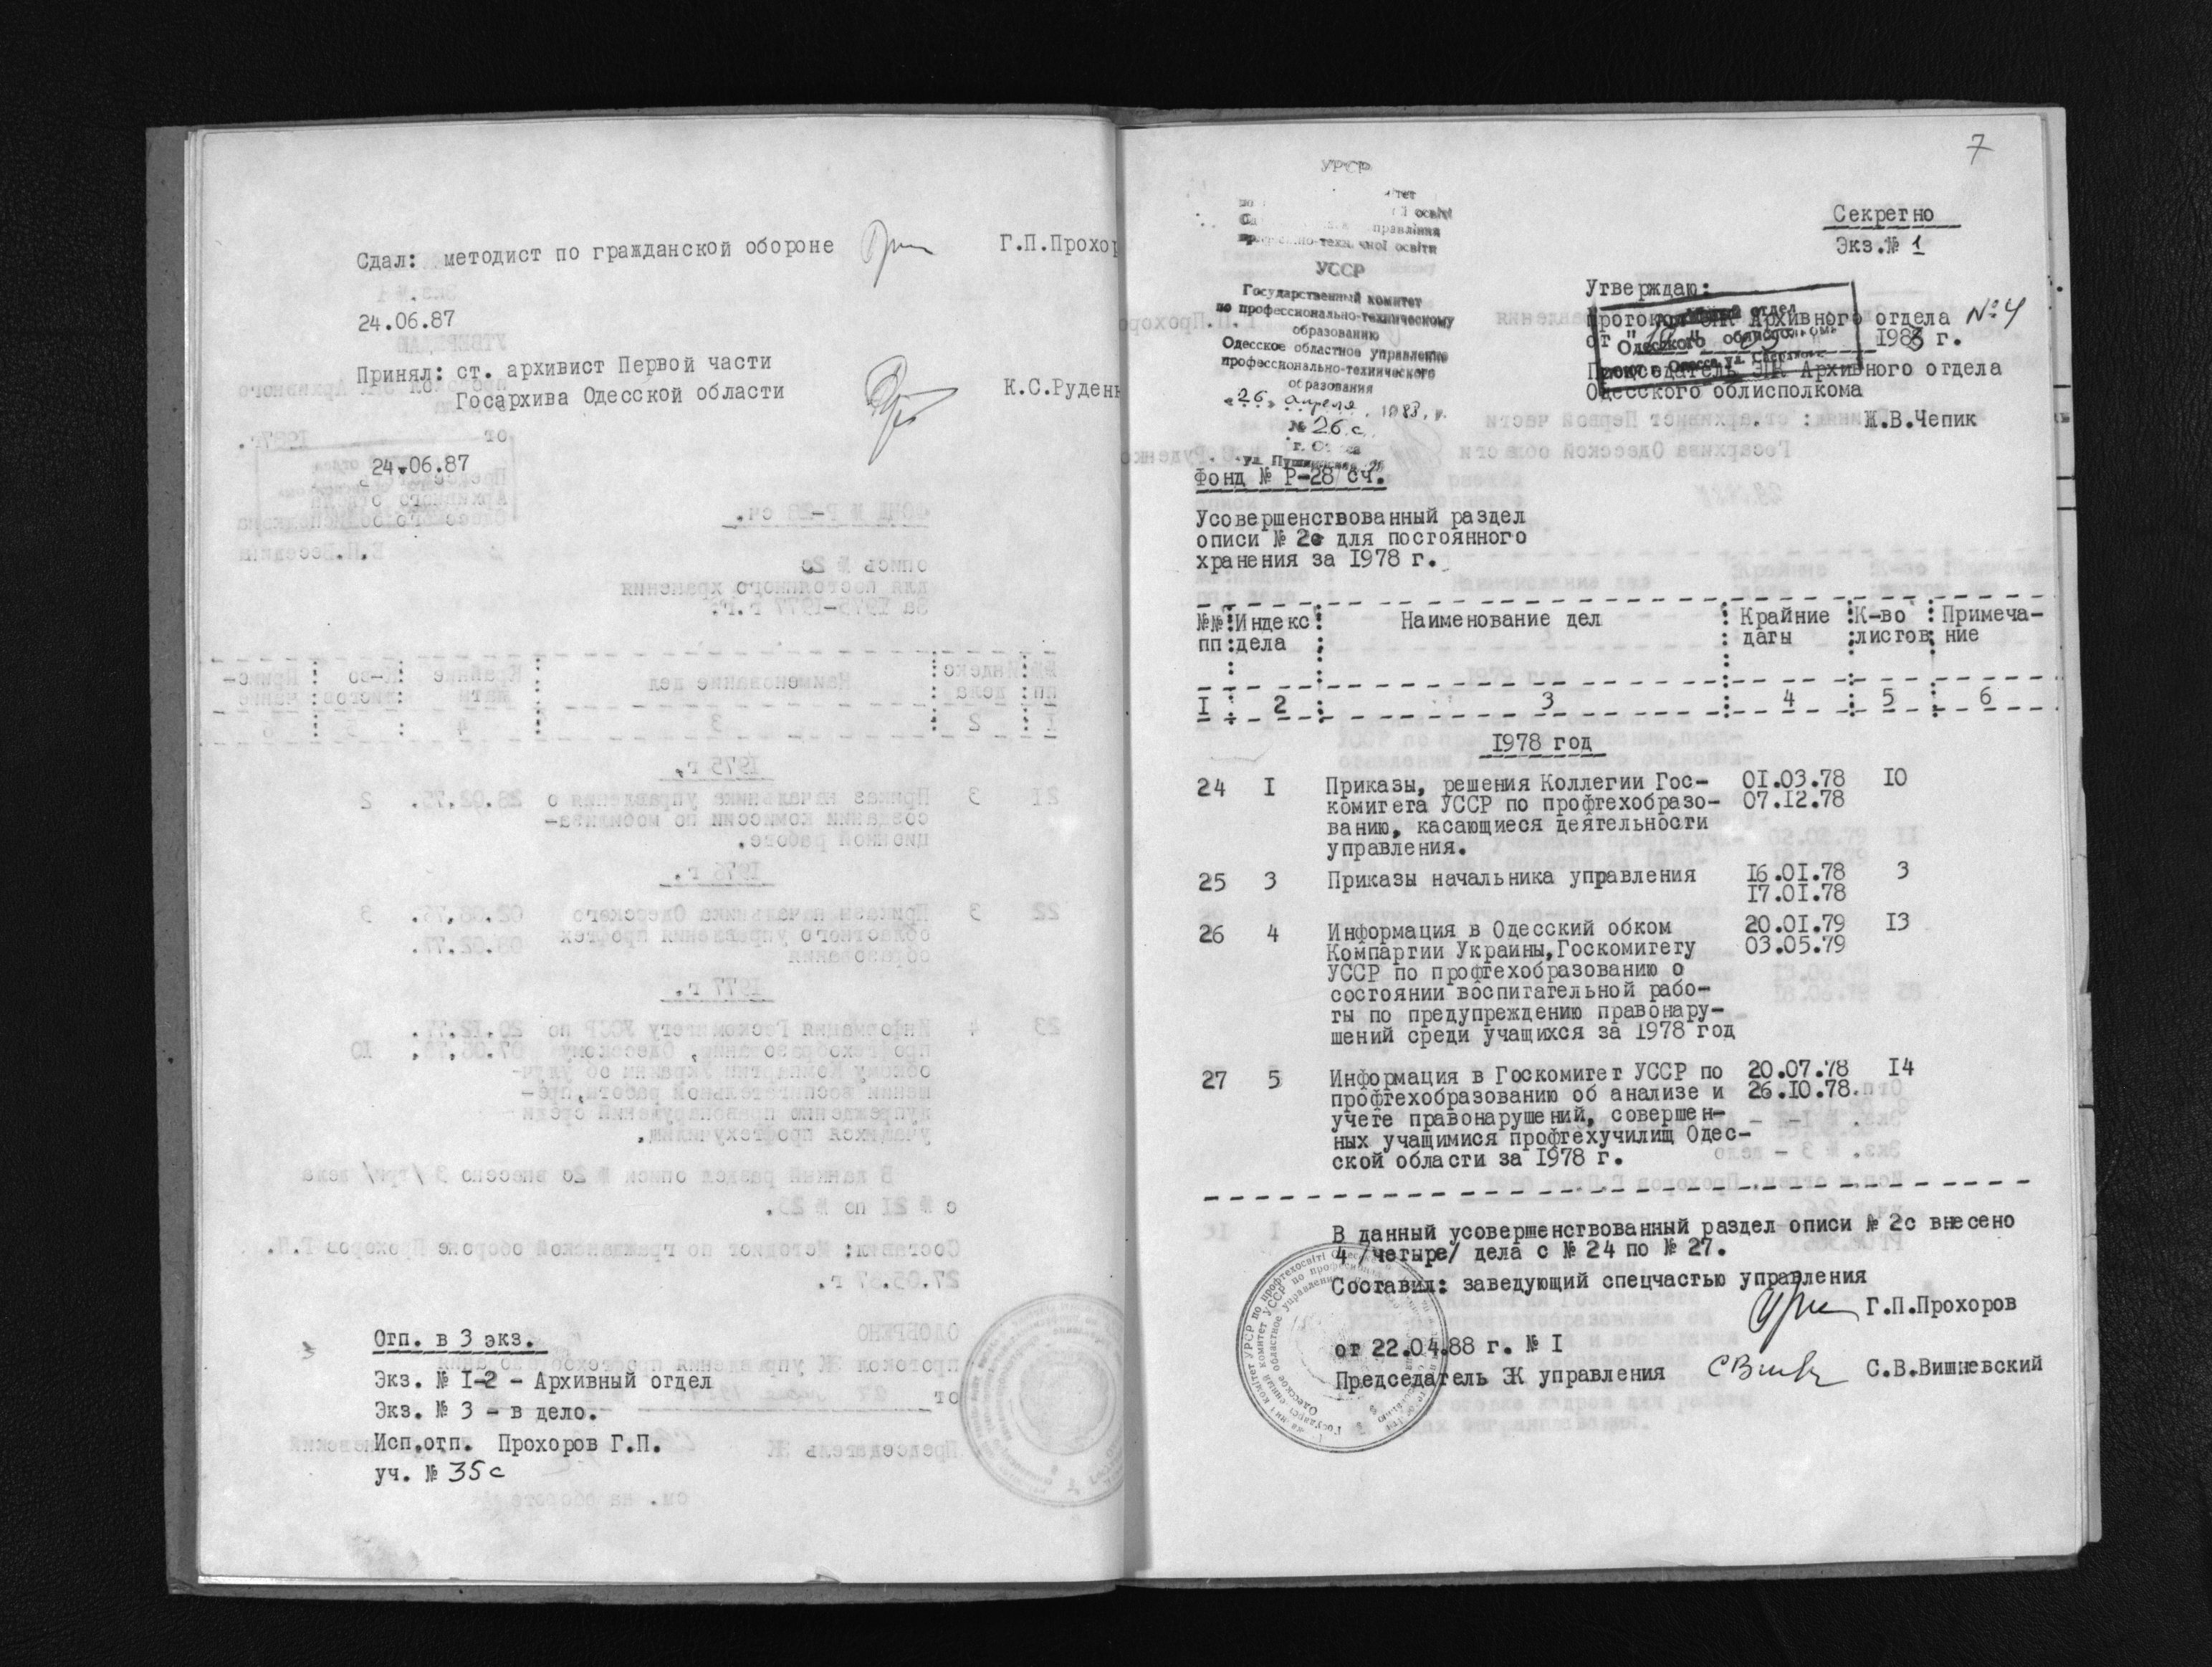 Сдал: методист по гражданской обороне Г.П.Прохор
24.06.87
Принял: ст. архивист Первой части
Госархива Одесской области К.С.Руденк
24.06.87
Отп. в 3 экз.
Экз. № I-2 - Архивный отдел
Экз. № 3 - в дело.
Исп.отп. Прохоров Г.П.
уч. № 35с
7
УРСР
освіти
правління
освіти
УССР
Государственный комитет
по профессионально-техническому
образованию
Одесское областное управление
профессионально-технического
образования
"26" апреля 1988 г.
№ 26с
г.
ул.
Секретно
Экз.№ 1
Утверждаю:
Протокол ЭПК Архивного отдела №4
от 198 г.
Председатель ЭПК Архивного отдела
Одесского облисполкома
Ж.В.Чепик
Фонд № Р-28 сч.
Усовершенствованный раздел
описи № 2с для постоянного
хранения за 1978 г.
№№ Индекс Наименование дел Крайние К-во Примеча-
пп дела даты листов ние
I 2 3 4 5 6
1978 год
24 I Приказы, решения Коллегии Гос- 01.03.78 IO
комитета УССР по профтехобразо- 07.12.78
ванию, касающиеся деятельности
управления.
25 3 Приказы начальника управления 16.01.78 3
17.01.78
26 4 Информация в Одесский обком 20.01.79 I3
Компартии Украины,Госкомитету 03.05.79
УССР по профтехобразованию о
состоянии воспитательной рабо-
ты по предупреждению правонару-
шений среди учащихся за 1978 год
27 5 Информация в Госкомитет УССР по 20.07.78 I4
профтехобразованию об анализе и 26.10.78.
учете правонарушений, совершен-
ных учащимися профтехучилищ Одес-
ской области за 1978 г.
В данный усовершенствованный раздел описи № 2с внесено
4 /четыре/ дела с № 24 по № 27.
Составил: заведующий спецчастью управления
Г.П.Прохоров
от 22.04.88 г. № I
Председатель ЭК управления С.В.Вишневский